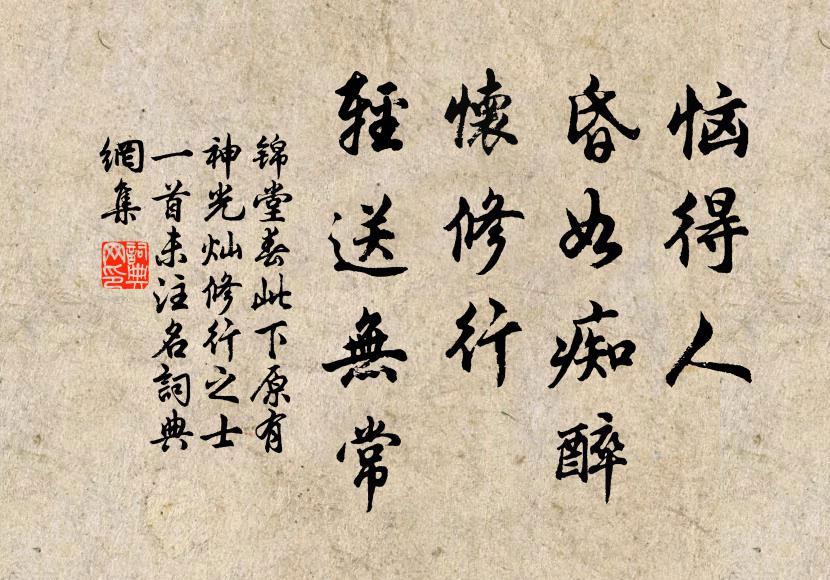 恼得人
昏如痴醉
懷修行
輕送無常
锦堂春此下原有
神光灿修行之士
一首未注名詞典
網集
詞典
网印